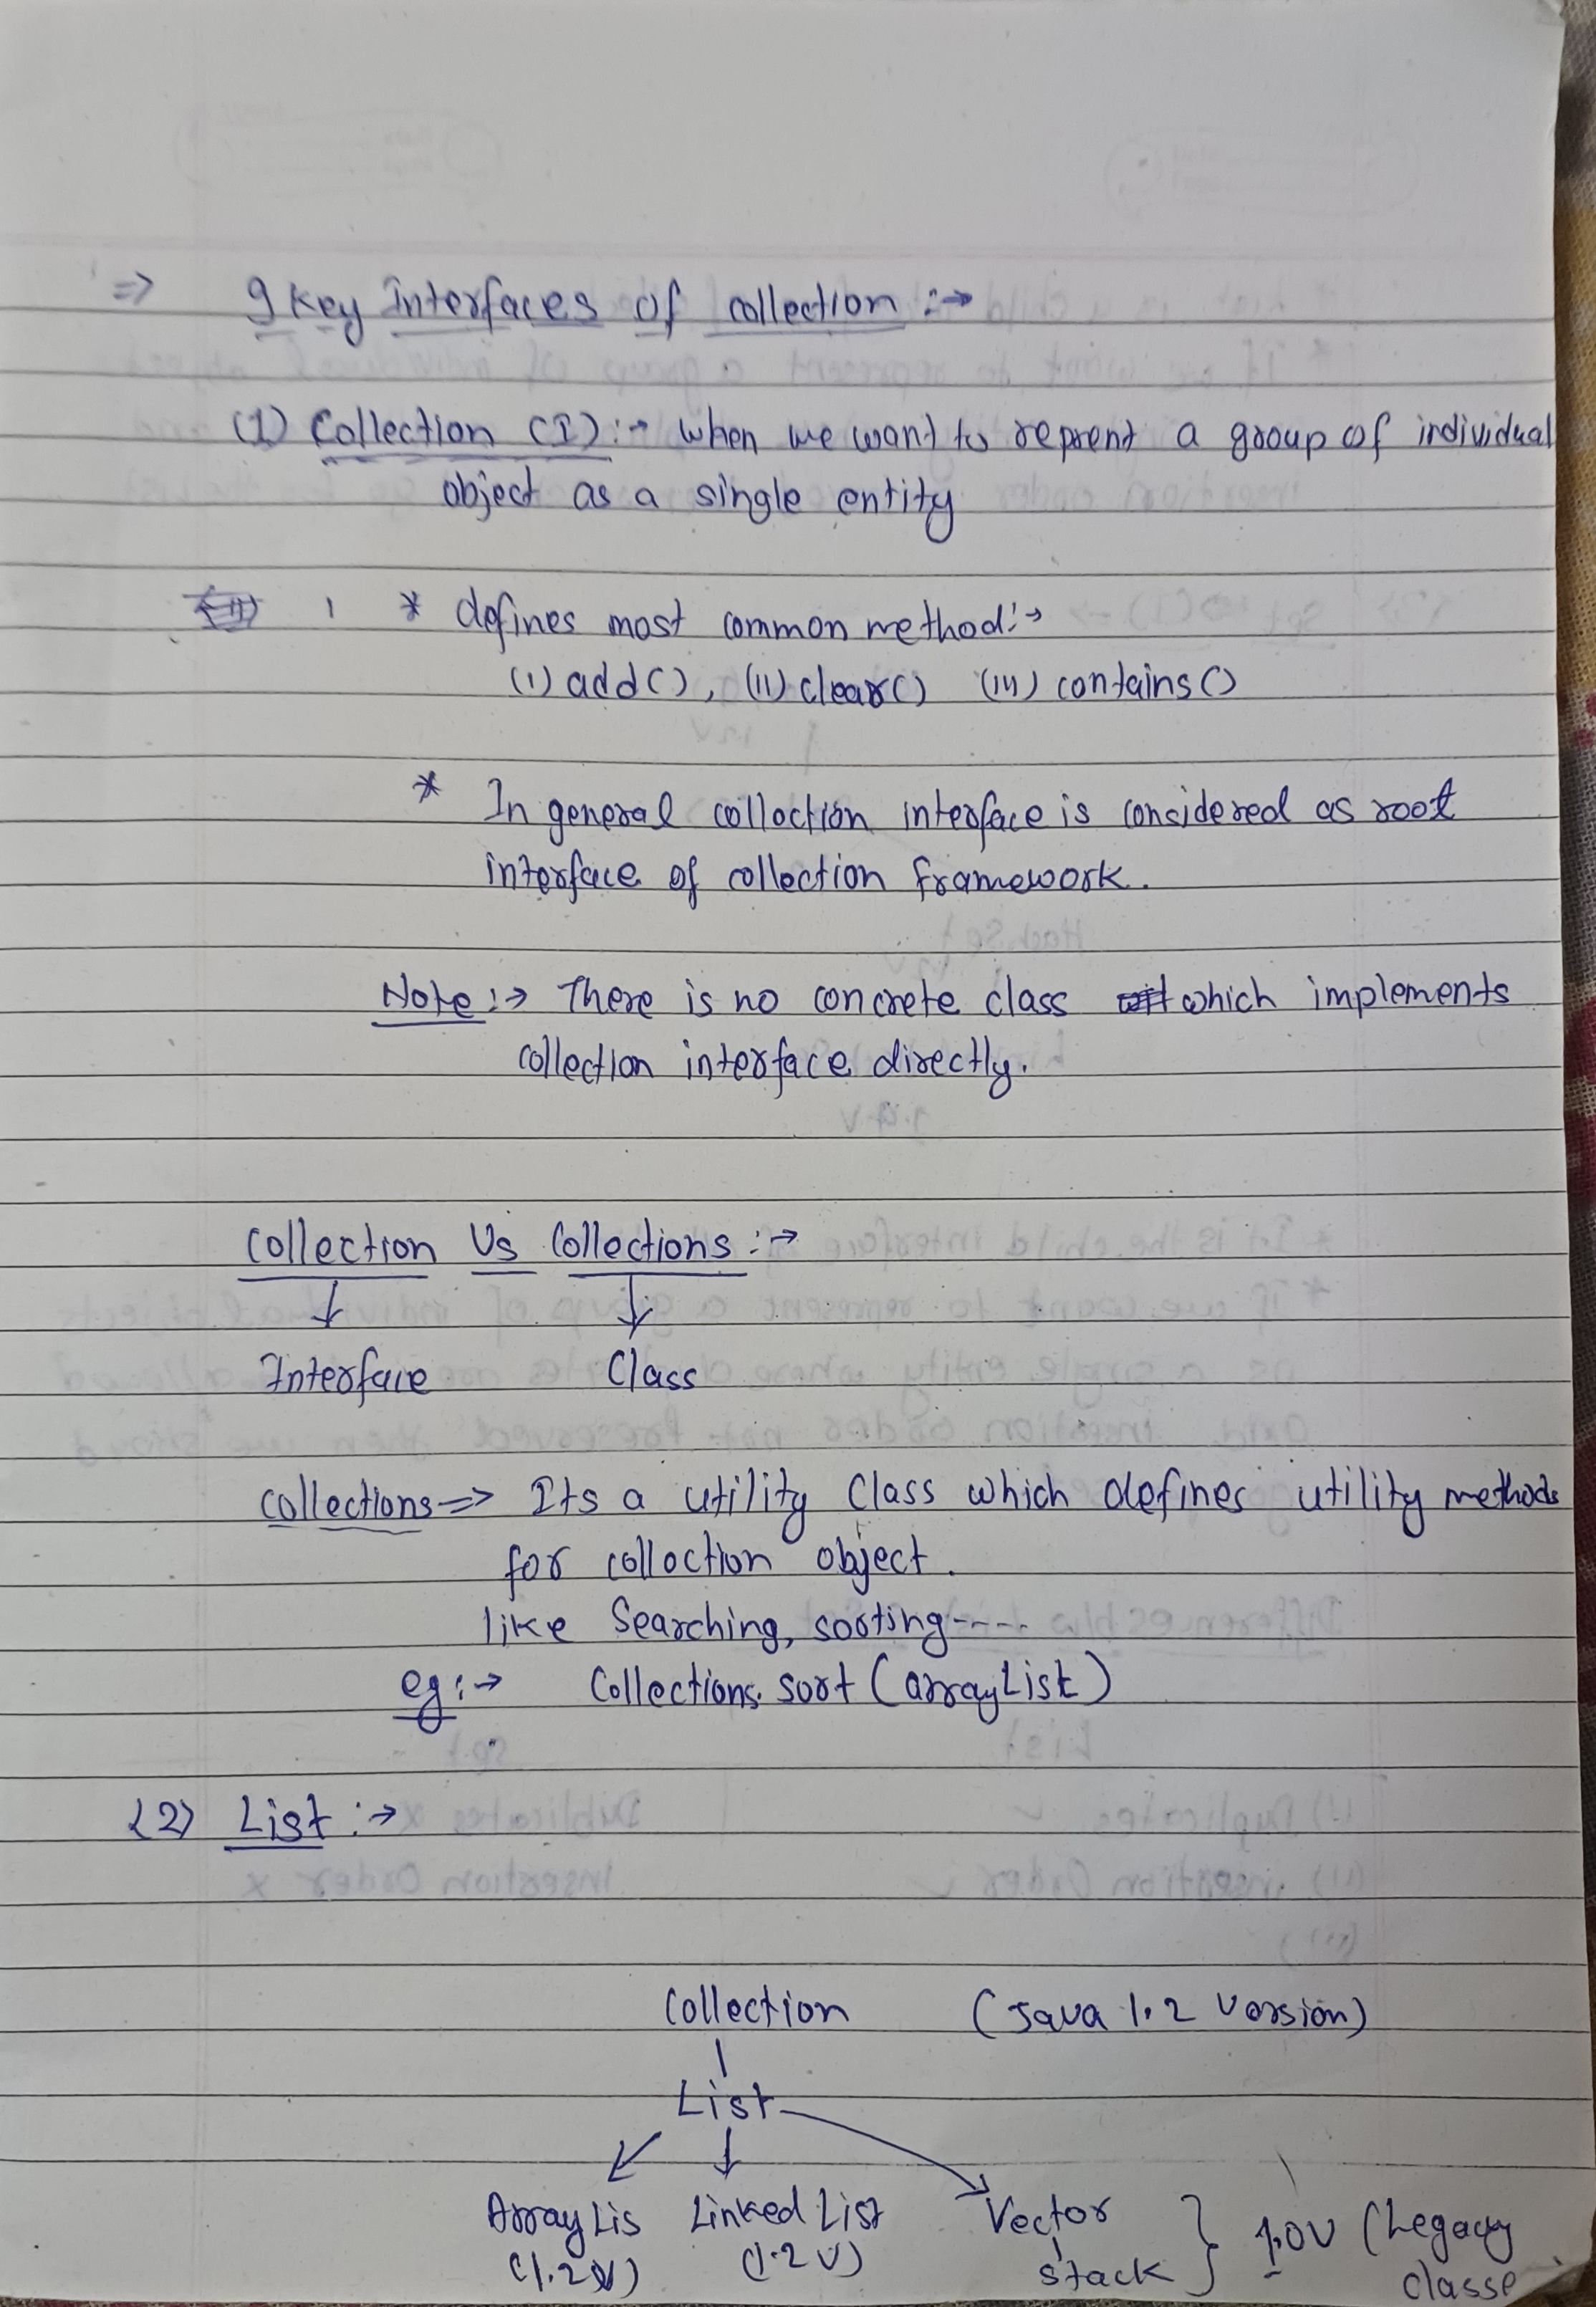 => 9 key interfaces of collection :→
(1) Collection (I) :→ when we want to reprent a group of individual
object as a single entity
* defines most common method :→
(i) add(), (ii) clear() (iii) contains()
* In general collection interface is considered as root
interface of collection framework.
Note :→ There is no concrete class which implements
collection interface directly.
collection Vs Collections :→
↓ ↓
Interface Class
collections => Its a utility Class which defines utility methods
for collection object.
like Searching, sorting----
eg :→ Collections. sort (arrayList)
(2) List :→
Collection (Java 1.2 Version)
List
ArrayLis Linked List Vector
(1.2V) (1.2 V) stack } 1.0V (Legacy
classe